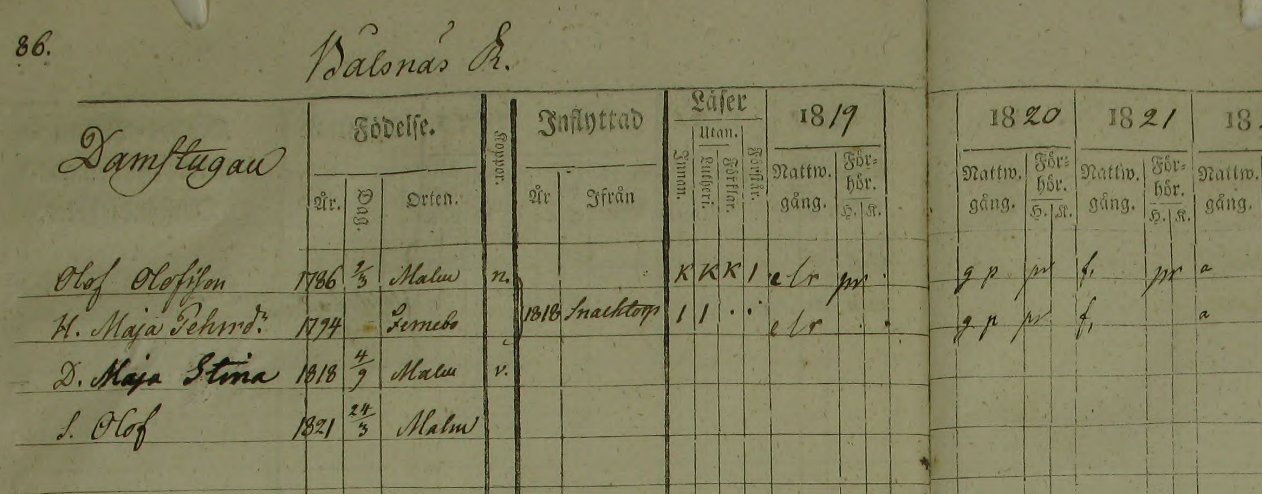 86.
Bålsnäs K.
Damstugan
Födelse. Koppor. Inflyttad Läser 1819 1820 1821 18
Utan.
År. Dag. Orten. År Ifrån Innan. Lutheri. Förklar. Förstår. Nattw. gång. För-hör. H. K. Nattw. gång. För-hör. H. K. Nattw. gång. För-hör. H. K. Nattw. gång.
Olof Olofsson 1786 3 Malm n. K K K 1 e l r pr g p pr f, pr a
H. Maja Pehrsd:r 1794 Fernebo 1818 1 1 e l r g p pr f, a
D. Maja Stina 1818 4/9 Malm v.
S. Olof 1821 24/3 Malm